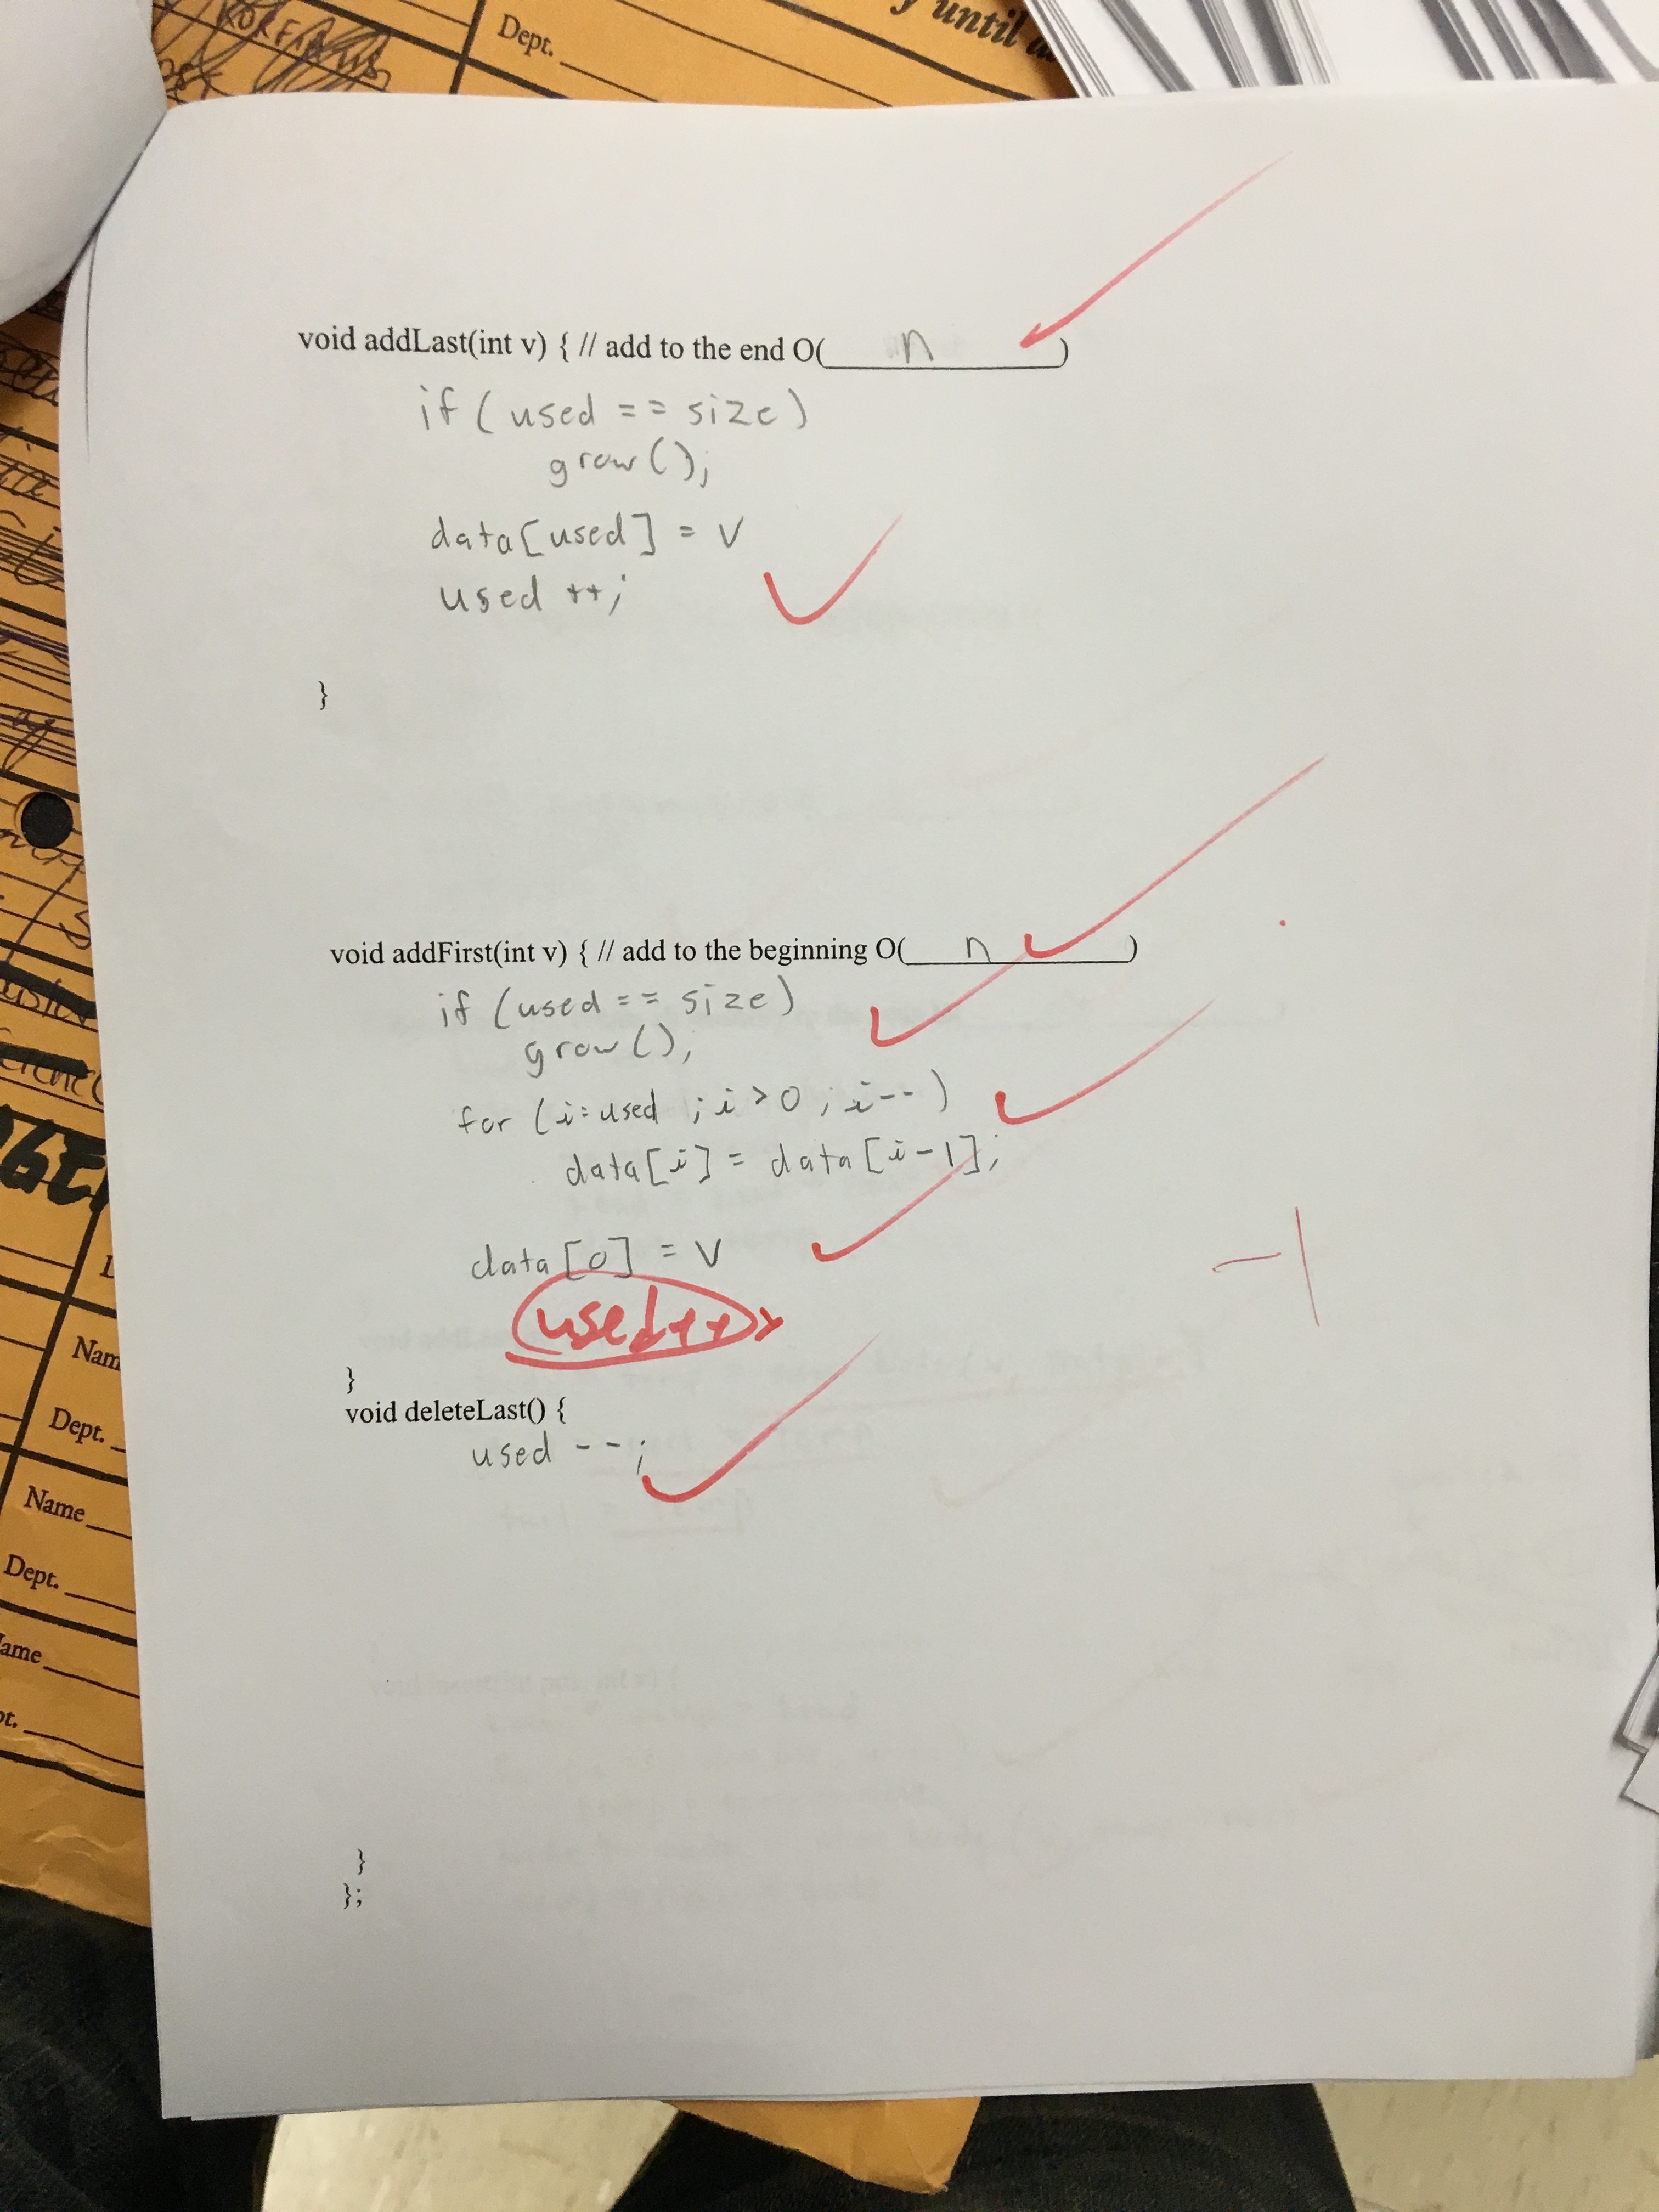 Dept.
y until
void addLast(int v) { // add to the end O( n )
if ( used == size )
grow();
data[used] = v
used ++;
}
void addFirst(int v) { // add to the beginning O( n )
if (used == size)
grow();
for (i=used ; i > 0 ; i--)
data[i] = data[i-1];
data[0] = v
-1
used++;
}
void deleteLast() {
used --;
}
};
Nam
Dept.
Name
Dept.
ame